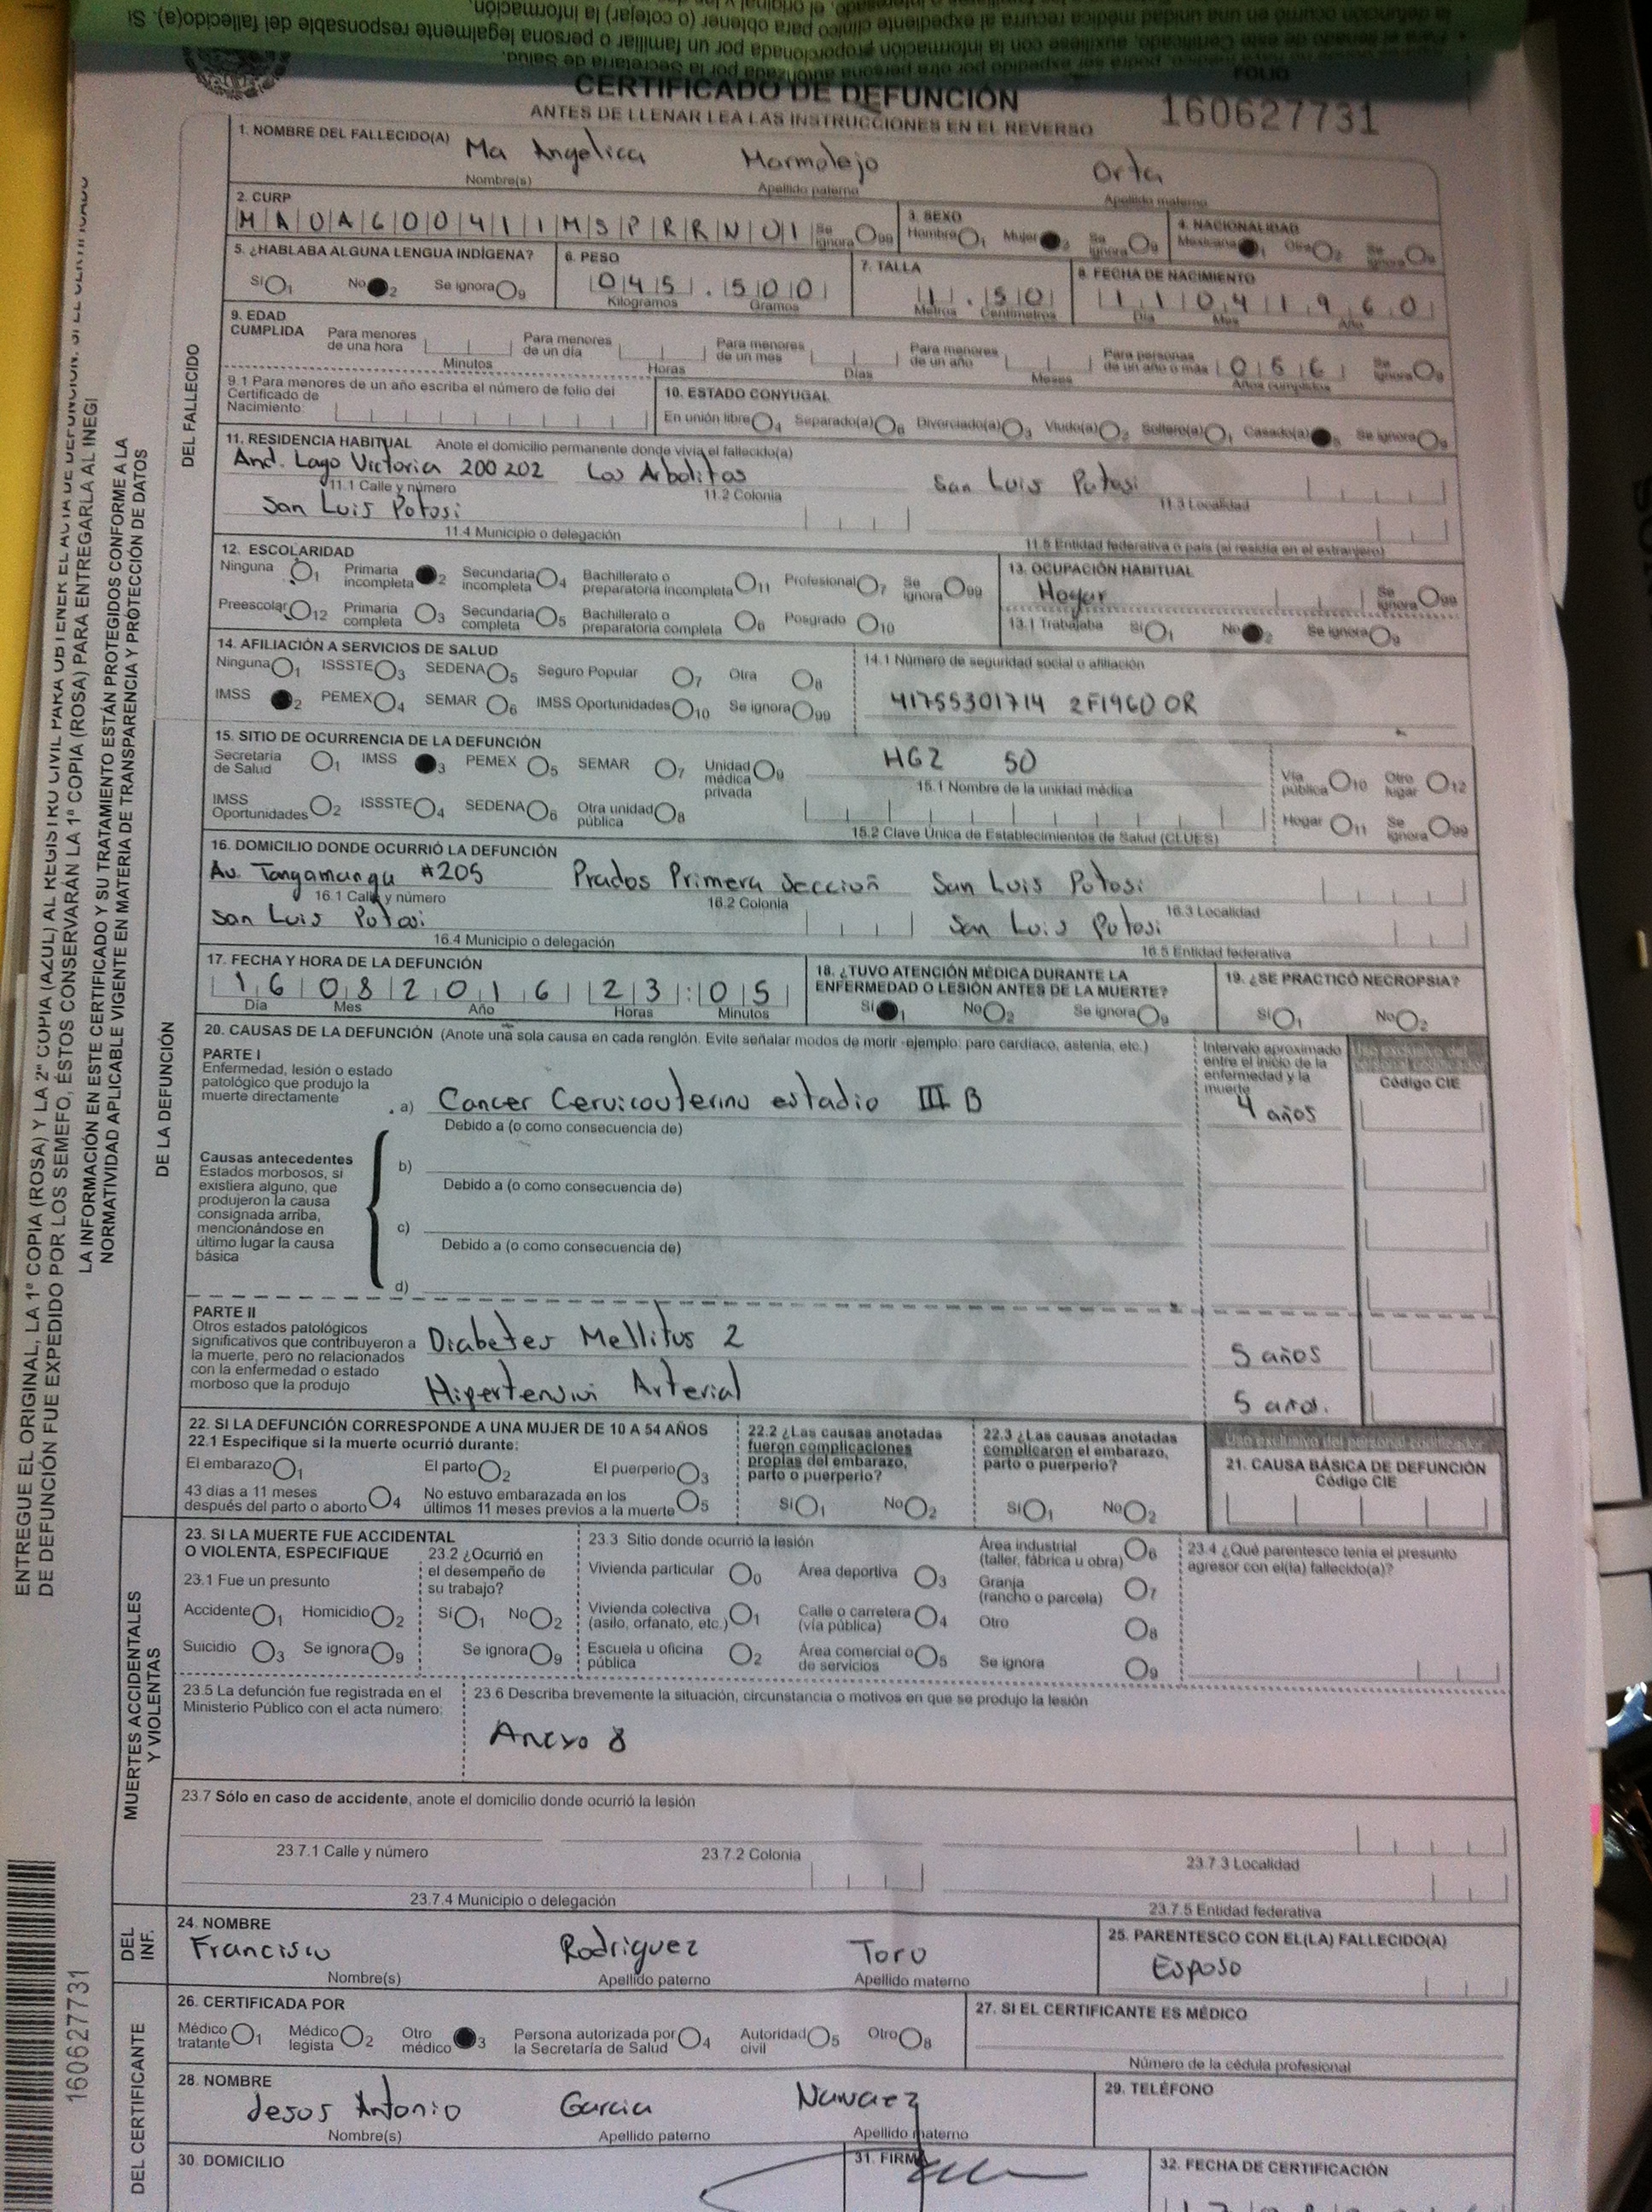 CERTIFICADO DE DEFUNCIÓN
FOLIO
160627731
ANTES DE LLENAR LEA LAS INSTRUCCIONES EN EL REVERSO
DEL FALLECIDO
1. NOMBRE DEL FALLECIDO(A) Ma Angelica Marmolejo Orta
Nombre(s) Apellido paterno Apellido materno
2. CURP 3. SEXO 4. NACIONALIDAD
MAOA600411MSPRRN01 Se ignora 99 Hombre 1 Mujer 2 Se ignora 9 Mexicana 1 Otra 2 Se ignora 9
5. ¿HABLABA ALGUNA LENGUA INDÍGENA? 6. PESO 7. TALLA 8. FECHA DE NACIMIENTO
Sí 1 No 2 Se ignora 9 045.500 1.50 11041960
Kilogramos Gramos Metros Centímetros Día Mes Año
9. EDAD CUMPLIDA Para menores de una hora Para menores de un día Para menores de un mes Para menores de un año Para personas de un año o más 056 Se ignora 9
Minutos Horas Días Meses Años cumplidos
9.1 Para menores de un año escriba el número de folio del Certificado de Nacimiento:
10. ESTADO CONYUGAL
En unión libre 4 Separado(a) 6 Divorciado(a) 3 Viudo(a) 2 Soltero(a) 1 Casado(a) 5 Se ignora 9
11. RESIDENCIA HABITUAL Anote el domicilio permanente donde vivía el fallecido(a)
And. Lago Victoria 200 202 Los Arbolitos San Luis Potosi
11.1 Calle y número 11.2 Colonia 11.3 Localidad
San Luis Potosi
11.4 Municipio o delegación 11.5 Entidad federativa o país (si residía en el extranjero)
12. ESCOLARIDAD 13. OCUPACIÓN HABITUAL
Ninguna 1 Primaria incompleta 2 Secundaria incompleta 4 Bachillerato o preparatoria incompleta 11 Profesional 7 Se ignora 99 Hogar Se ignora 99
Preescolar 12 Primaria completa 3 Secundaria completa 5 Bachillerato o preparatoria completa 6 Posgrado 10 13.1 Trabajaba Sí 1 No 2 Se ignora 9
14. AFILIACIÓN A SERVICIOS DE SALUD 14.1 Número de seguridad social o afiliación
Ninguna 1 ISSSTE 3 SEDENA 5 Seguro Popular 7 Otra 8
IMSS 2 PEMEX 4 SEMAR 6 IMSS Oportunidades 10 Se ignora 99 41755301714 2F1960 OR
DE LA DEFUNCIÓN
15. SITIO DE OCURRENCIA DE LA DEFUNCIÓN
Secretaría de Salud 1 IMSS 3 PEMEX 5 SEMAR 7 Unidad médica privada 9 HGZ 50 Vía pública 10 Otro lugar 12
15.1 Nombre de la unidad médica
IMSS Oportunidades 2 ISSSTE 4 SEDENA 6 Otra unidad pública 8 Hogar 11 Se ignora 99
15.2 Clave Única de Establecimientos de Salud (CLUES)
16. DOMICILIO DONDE OCURRIÓ LA DEFUNCIÓN
Av. Tangamanga #205 Prados Primera Sección San Luis Potosi
16.1 Calle y número 16.2 Colonia 16.3 Localidad
San Luis Potosi San Luis Potosi
16.4 Municipio o delegación 16.5 Entidad federativa
17. FECHA Y HORA DE LA DEFUNCIÓN 18. ¿TUVO ATENCIÓN MÉDICA DURANTE LA ENFERMEDAD O LESIÓN ANTES DE LA MUERTE? 19. ¿SE PRACTICÓ NECROPSIA?
16082016 23:05 Sí 1 No 2 Se ignora 9 Sí 1 No 2
Día Mes Año Horas Minutos
20. CAUSAS DE LA DEFUNCIÓN (Anote una sola causa en cada renglón. Evite señalar modos de morir -ejemplo: paro cardíaco, astenia, etc.)
Intervalo aproximado entre el inicio de la enfermedad y la muerte
Código CIE
PARTE I
Enfermedad, lesión o estado patológico que produjo la muerte directamente
a) Cancer Cervicouterino estadio III B 4 años
Debido a (o como consecuencia de)
Causas antecedentes
Estados morbosos, si existiera alguno, que produjeron la causa consignada arriba, mencionándose en último lugar la causa básica
b)
Debido a (o como consecuencia de)
c)
Debido a (o como consecuencia de)
d)
PARTE II
Otros estados patológicos significativos que contribuyeron a la muerte, pero no relacionados con la enfermedad o estado morboso que la produjo
Diabetes Mellitus 2 5 años
Hipertension Arterial 5 años.
22. SI LA DEFUNCIÓN CORRESPONDE A UNA MUJER DE 10 A 54 AÑOS
22.1 Especifique si la muerte ocurrió durante:
El embarazo 1 El parto 2 El puerperio 3
43 días a 11 meses después del parto o aborto 4 No estuvo embarazada en los últimos 11 meses previos a la muerte 5
22.2 ¿Las causas anotadas fueron complicaciones propias del embarazo, parto o puerperio?
Sí 1 No 2
22.3 ¿Las causas anotadas complicaron el embarazo, parto o puerperio?
Sí 1 No 2
Uso exclusivo del personal codificador
21. CAUSA BÁSICA DE DEFUNCIÓN
Código CIE
MUERTES ACCIDENTALES Y VIOLENTAS
23. SI LA MUERTE FUE ACCIDENTAL O VIOLENTA, ESPECIFIQUE
23.1 Fue un presunto
Accidente 1 Homicidio 2
Suicidio 3 Se ignora 9
23.2 ¿Ocurrió en el desempeño de su trabajo?
Sí 1 No 2
Se ignora 9
23.3 Sitio donde ocurrió la lesión
Vivienda particular 0 Área deportiva 3 Área industrial (taller, fábrica u obra) 6
Vivienda colectiva (asilo, orfanato, etc.) 1 Calle o carretera (vía pública) 4 Granja (rancho o parcela) 7
Escuela u oficina pública 2 Área comercial o de servicios 5 Otro 8
Se ignora 9
23.4 ¿Qué parentesco tenía el presunto agresor con el(la) fallecido(a)?
23.5 La defunción fue registrada en el Ministerio Público con el acta número:
23.6 Describa brevemente la situación, circunstancia o motivos en que se produjo la lesión
Anexo 8
23.7 Sólo en caso de accidente, anote el domicilio donde ocurrió la lesión
23.7.1 Calle y número 23.7.2 Colonia 23.7.3 Localidad
23.7.4 Municipio o delegación 23.7.5 Entidad federativa
DEL INF.
24. NOMBRE 25. PARENTESCO CON EL(LA) FALLECIDO(A)
Francisco Rodriguez Toro Esposo
Nombre(s) Apellido paterno Apellido materno
DEL CERTIFICANTE
26. CERTIFICADA POR 27. SI EL CERTIFICANTE ES MÉDICO
Médico tratante 1 Médico legista 2 Otro médico 3 Persona autorizada por la Secretaría de Salud 4 Autoridad civil 5 Otro 8
Número de la cédula profesional
28. NOMBRE 29. TELÉFONO
Jesus Antonio Garcia
Nombre(s) Apellido paterno Apellido materno
30. DOMICILIO 31. FIRMA 32. FECHA DE CERTIFICACIÓN
LA INFORMACIÓN EN ESTE CERTIFICADO Y SU TRATAMIENTO ESTÁN PROTEGIDOS CONFORME A LA
NORMATIVIDAD APLICABLE VIGENTE EN MATERIA DE TRANSPARENCIA Y PROTECCIÓN DE DATOS
ENTREGUE EL ORIGINAL, LA 1ª COPIA (ROSA) Y LA 2ª COPIA (AZUL) AL REGISTRO CIVIL PARA OBTENER EL ACTA DE DEFUNCIÓN. SI EL CERTIFICADO
DE DEFUNCIÓN FUE EXPEDIDO POR LOS SEMEFO, ÉSTOS CONSERVARÁN LA 1ª COPIA (ROSA) PARA ENTREGARLA AL INEGI
160627731